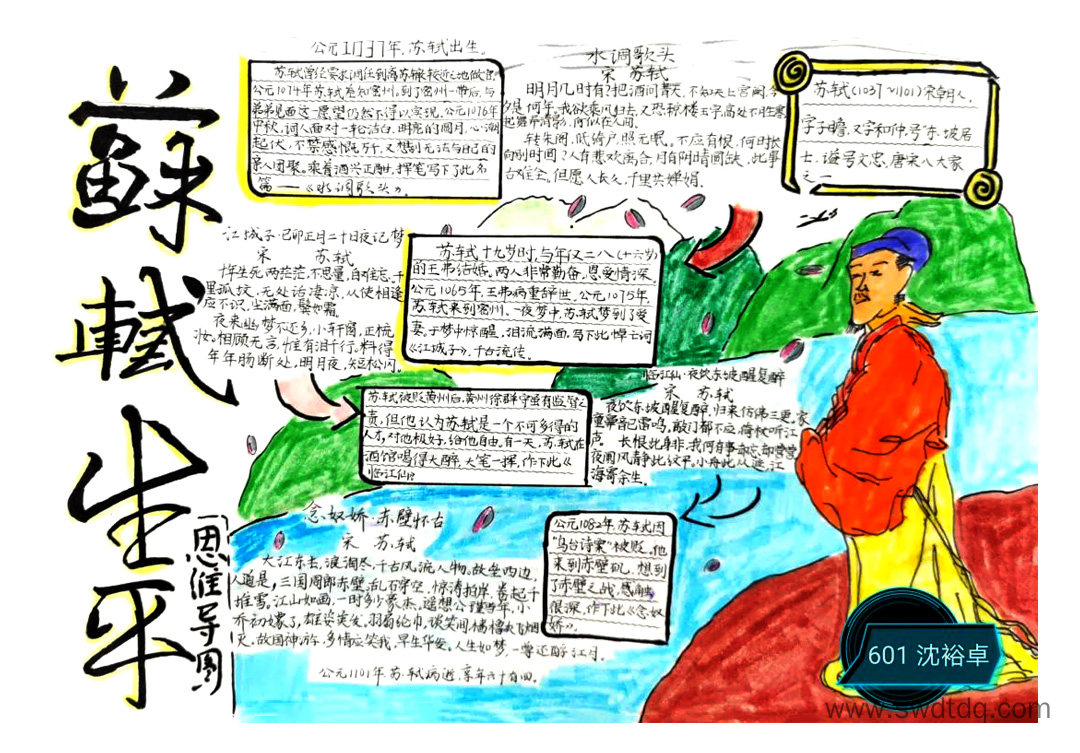 蘇軾生平
「思维导图
公元1037年，苏轼出生。
苏轼曾经要求调任到离苏辙较近之地做官
公元1074年苏轼差知密州。到了密州一带后，与
弟弟见面这一愿望仍然不得以实现。公元1076年
中秋，词人面对一轮洁白、明亮的圆月，心潮
起伏，不禁感慨万千，又想到无法与自己的
亲人团聚。乘着酒兴正酣，挥笔写下了此名
篇——《水调歌头》。
水调歌头
宋 苏轼
明月几时有？把酒问青天，不知天上宫阙，今
夕是何年，我欲乘风归去，又恐琼楼玉宇，高处不胜寒
起舞弄清影，何似在人间。
转朱阁，低绮户，照无眠。不应有恨，何时长
向别时圆？人有悲欢离合，月有阴晴圆缺，此事
古难全。但愿人长久，千里共婵娟。
苏轼（1037～1101）宋朝人，
字子瞻，又字和仲，号“东坡居
士，谥号文忠，唐宋八大家
之一
江城子·己卯正月二十日夜记梦
宋 苏轼
十年生死两茫茫，不思量，自难忘，千
里孤坟，无处话凄凉，从使相逢
应不识，尘满面，鬓如霜。
夜来幽梦不还乡，小轩窗，正梳
妆。相顾无言，惟有泪千行。料得
年年肠断处，明月夜，短松冈。
苏轼十九岁时，与年仅二八（十六岁）
的王弗结婚，两人非常勤奋，恩爱情深
公元1065年，王弗病重辞世，公元1075年，
苏轼来到密州、一夜梦中，苏轼梦到了爱
妻，于梦中惊醒，泪流满面，写下此悼亡词
《江城子》，千古流传。
苏轼被贬黄州后，黄州徐群守虽有监管之
责，但他认为苏轼是一个不可多得的
人才，对他极好，给他自由，有一天，苏轼在
酒馆喝得大醉，大笔一挥，作下此《
临江仙》
临江仙·夜饮东坡醒复醉
宋 苏轼
夜饮东坡醒复醉，归来仿佛三更，家
童鼻息已雷鸣，敲门都不应，倚杖听江
声。 长恨此身非我，何有事却忘却营营
夜阑风静此纹平，小舟此从逝，江
海寄余生。
念奴娇·赤壁怀古
宋 苏轼
大江东去，浪淘尽，千古风流人物。故垒西边，
人道是，三国周郎赤壁，乱石穿空，惊涛拍岸，卷起千
堆雪。江山如画，一时多少豪杰，遥想公瑾当年，小
乔初嫁了，雄姿英发，羽扇纶巾，谈笑间，樯橹灰飞烟
灭，故国神游，多情应笑我，早生华发。人生如梦，一尊还酹江月。
公元1082年，苏轼因
“乌台诗案”被贬，他
来到赤壁矶，想到
了赤壁之战，感触
很深，作下此《念奴
娇》。
公元1101年苏轼病逝，享年六十有四。
601 沈裕卓
www.swdtdq.com